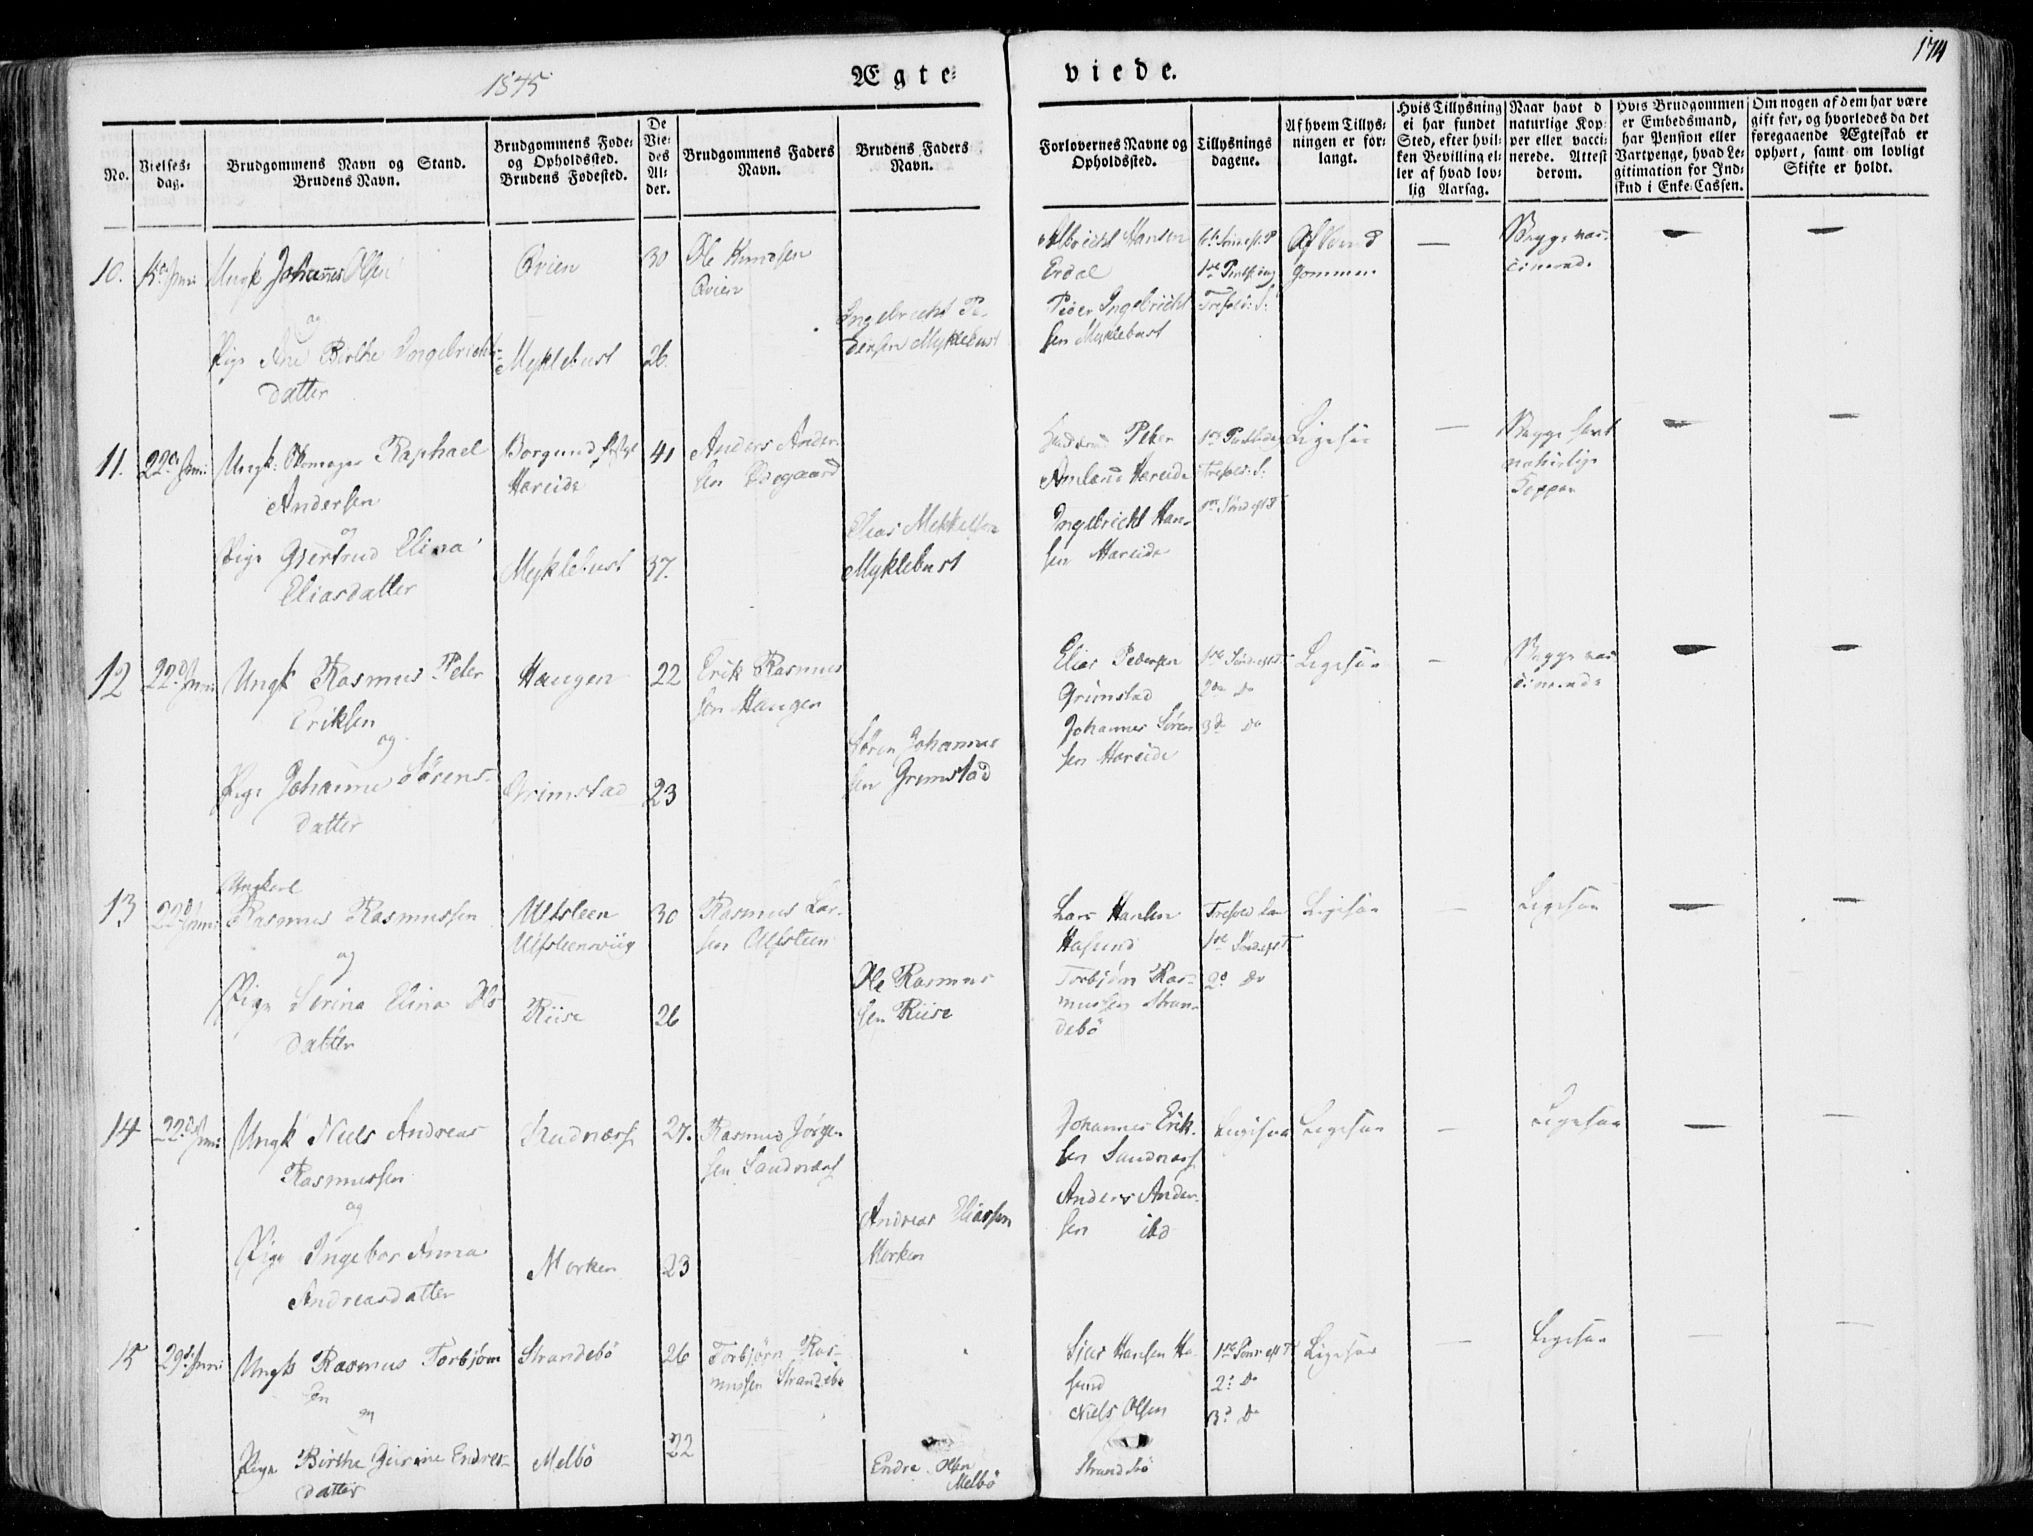 174
1845
Ægte-
viede.
No.
Vielses-
dag.
Brudgommens Navn og Stand.
Brudens Navn.
Brudgommens Føde-
og Opholdssted.
Brudens Fødested.
De
Vie-
des
Al-
der.
Brudgommens Faders
Navn.
Brudens Faders
Navn.
Forlovernes Navne og
Opholdssted.
Tillysnings
dagene.
Af hvem Tillys-
ningen er for-
langt.
Hvis Tillysning
ei har fundet
Sted, efter hvil-
ken Bevilling el-
ler af hvad lov-
lig Aarsag.
Naar havt d
naturlige Kop-
per eller vacci-
nerede. Attest
derom.
Hvis Brudgommen
er Embedsmand,
har Pension eller
Vartpenge, hvad Le-
gitimation for Ind-
skud i Enke-Cassen.
Om nogen af dem har være
gift før, og hvorledes da det
foregaaende Ægteskab er
ophørt, samt om lovligt
Skifte er holdt.
10.
Juni
Ungk Johannes Olsen
og
Pige Ane Birthe Ingebrichts-
datter
Qvien
Myklebust
30
26.
Ole Knudsen
Qvien
Ingebricht Pe-
dersen Myklebust
Albricht Hansen
Erdal
Peder Ingebricht
sen Myklebust
1te Pintsedag
Trefold: S:
Af Brud
gommen
—
Begge vac-
cinerede
—
—
11.
22de Juni
Ungk: Skomager Raphael
Andersen
og
Pige Gjertrud Elina
Eliasdatter
Borgund
Hareide
Myklebust
41
37.
Anders Ander-
sen
Elias Mikkelsen
Myklebust
Peter
Hareide
Ingebricht Han-
sen Hareide
1te Pintsedag
Trefold: S:
Ligesaa
—
Begge havt
naturlige
Kopper
—
—
12
22de Juni
Ungk Rasmus Peter
Eriksen
og
Pige Johanne Sørens-
datter
Haugen
Grimstad
22
23
Erik Rasmus
sen Haugen
Søren Johannes
sen Grimstad
Elias Pedersen
Grimstad
Johannes Søren
sen Hareide
2de do
3de do
Ligesaa
—
Begge vac-
cinerede
—
—
13
22de Juni
Ungkarl
Rasmus Rasmussen
og
Pige Serina Elina Ols
datter
Ulfsteen
Ulfsteenviig
Riise
30
26
Rasmus Lar-
sen Ulfsteen
Ole Rasmus
sen Riise
Lars Hansen
Hasund
Torbjørn Ras-
mussen Stran-
debö
2d do
Ligesaa
—
Ligesaa
—
—
14
22de Juni
Ungk Niels Andreas
Rasmussen
og
Pige Ingebor Anna
Andreasdatter
Morken
27.
23
Rasmus Jørgen-
sen Sandnæs
Andreas Eliassen
Morken
Johannes Erik-
sen Sandnæs
Anders Ander-
sen ibd
Ligesaa
Ligesaa
—
Ligesaa
—
—
15
29de Juni
Ungk Rasmus Torbjørn
sen
og
Pige Birthe Endres-
datter
Strandebö
Melbö
26
22
Torbjørn Ras-
mussen Strandebö
Endre Olsen
Melbö
Hansen Ha-
sund
Niels Olsen
Strandebö
2d do
3d do
Ligesaa
—
Ligesaa
—
—